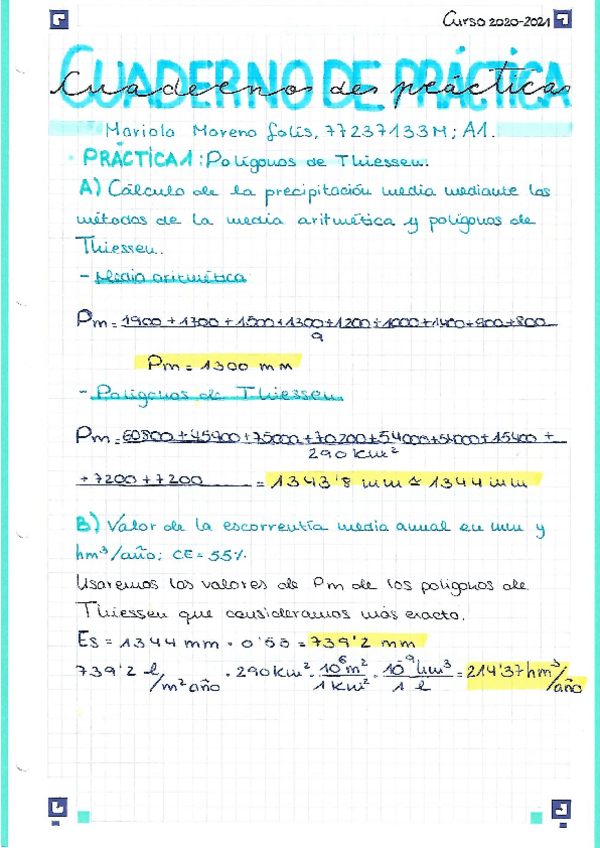 Curso 2020-2021
CUADERNO DE PRÁCTICA
Cuaderno de prácticas
Mariola Moreno Solís, 77237133M; A1.
PRÁCTICA 1: Polígonos de Thiessen.
A) Cálculo de la precipitación media mediante los
métodos de la media aritmética y polígonos de
Thiessen.
- Media aritmética
Pm = 1900 + 1700 + 1500 + 1300 + 1200 + 1000 + 1400 + 900 + 800
9
Pm = 1300 mm
- Polígonos de Thiessen
Pm = 60800 + 45900 + 75000 + 70200 + 54000 + 54000 + 15400 +
290 km²
+ 7200 + 7200 = 1343'8 mm ≃ 1344 mm
B) Valor de la escorrentía media anual en mm y
hm³/año; CE = 55%.
Usaremos los valores de Pm de los polígonos de
Thiessen que consideramos más exacto.
Es = 1344 mm · 0'55 = 739'2 mm
739'2 l/m² año · 290 km² · 10⁶ m²/1 km² · 10⁻⁹ hm³/1 l = 214'37 hm³/año